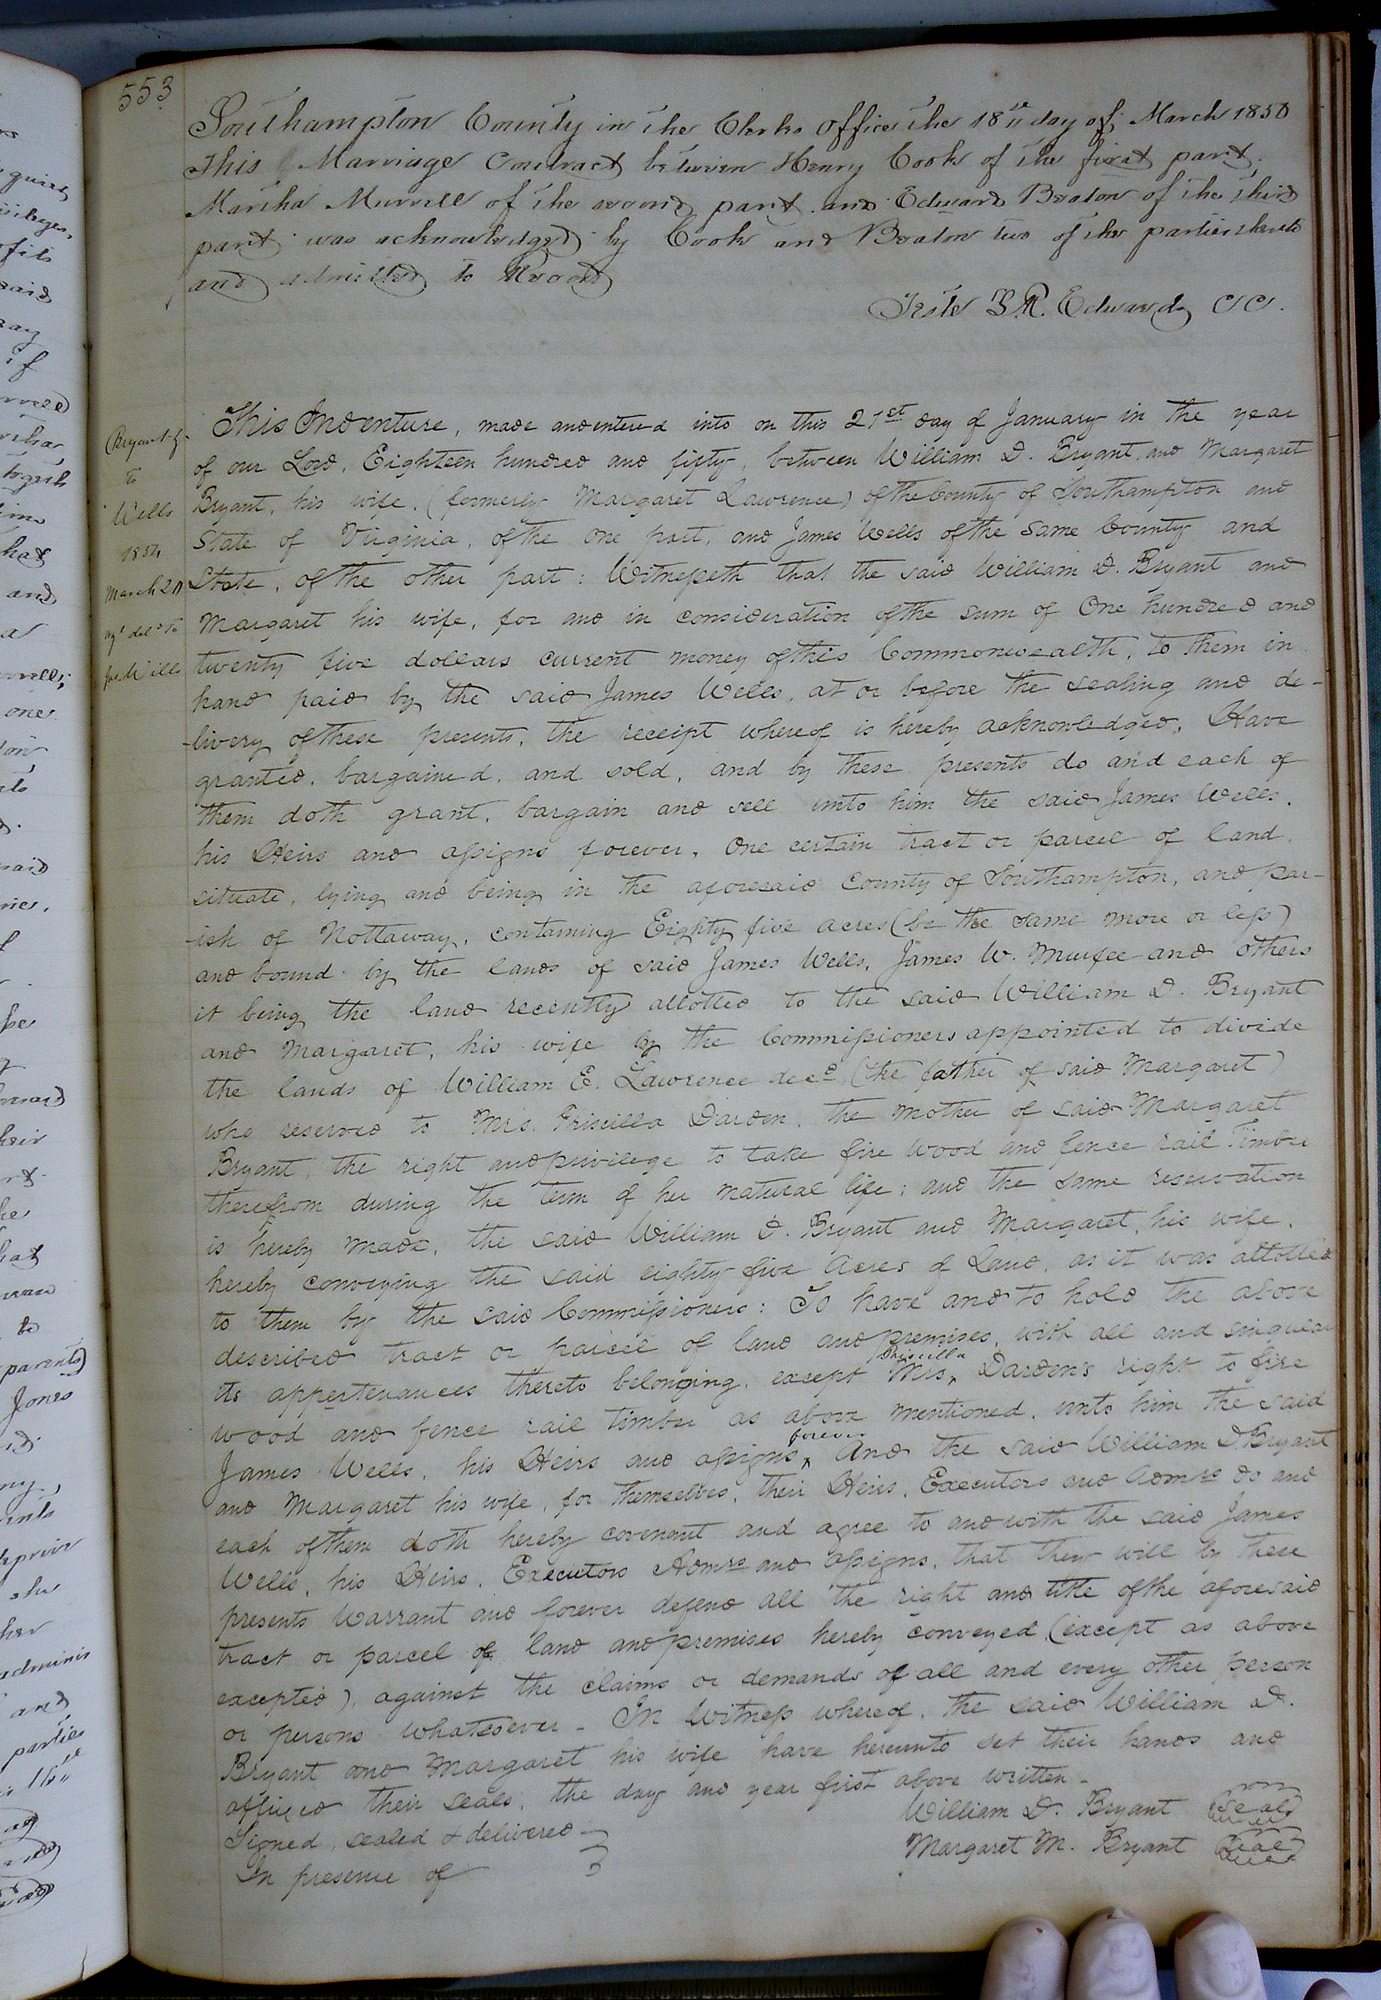 553
Southampton County in the Clerks office the 18th day of March 1850
This Marriage Contract between Henry Cook of the first part
Martha Murrell of the second part and Edward Beaton of the third
part was acknowledged by Cook and Beaton two of the parties thereto
and admitted to Record
Teste L. R. Edwards CSC.
Bryant &
to
Wells
1854
March 20
del'd to
Jas Wells
This Indenture, made and entered into on this 21st day of January in the year
of our Lord, Eighteen hundred and fifty, between William D. Bryant, and Margaret
Bryant, his wife, (formerly Margaret Lawrence) of the County of Southampton and
State of Virginia, of the one part, and James Wells of the same County and
State, of the other part: Witnesseth that the said William D. Bryant and
Margaret his wife, for and in consideration of the sum of One hundred and
twenty five dollars current money of this Commonwealth, to them in
hand paid by the said James Wells, at or before the sealing and de-
-livery of these presents, the receipt whereof is hereby acknowledged, Have
granted, bargained, and sold, and by these presents do and each of
them doth grant, bargain and sell unto him the said James Wells,
his Heirs and assigns forever, One certain tract or parcel of land,
situate, lying and being in the aforesaid County of Southampton, and par-
-ish of Nottaway, containing Eighty five acres (be the same more or less)
and bound by the lands of said James Wells, James W. Murfee and others
it being the land recently allotted to the said William D. Bryant
and Margaret, his wife by the Commissioners appointed to divide
the lands of William E. Lawrence dec'd, (the father of said Margaret)
who reserved to Mrs. Priscilla Darden, the mother of said Margaret
Bryant, the right and privilege to take fire wood and fence rail Timber
therefrom during the term of her natural life; and the same reservation
is hereby made, the said William D. Bryant and Margaret, his wife,
hereby conveying the said eighty five Acres of Land, as it was allotted
to them by the said Commissioners: To have and to hold the above
described tract or parcel of land and premises, with all and singular
its appertenances thereto belonging, except Mrs. Priscilla Darden's right to fire
wood and fence rail timber as above mentioned, unto him the said
James Wells, his Heirs and assigns forever, And the said William D Bryant
and Margaret his wife, for themselves, their Heirs, Executors and Admrs do and
each of them doth hereby covenant and agree to and with the said James
Wells, his Heirs, Executors Admrs and assigns, that they will by these
presents Warrant and forever defend all the right and title of the aforesaid
tract or parcel of land and premises hereby conveyed, (except as above
excepted), against the claims or demands of all and every other person
or persons whatsoever - In Witness whereof, the said William D.
Bryant and Margaret his wife have hereunto set their hands and
affixed their seals, the day and year first above written -
Signed, sealed & delivered
In presence of
William D. Bryant (Seal)
Margaret M. Bryant (Seal)